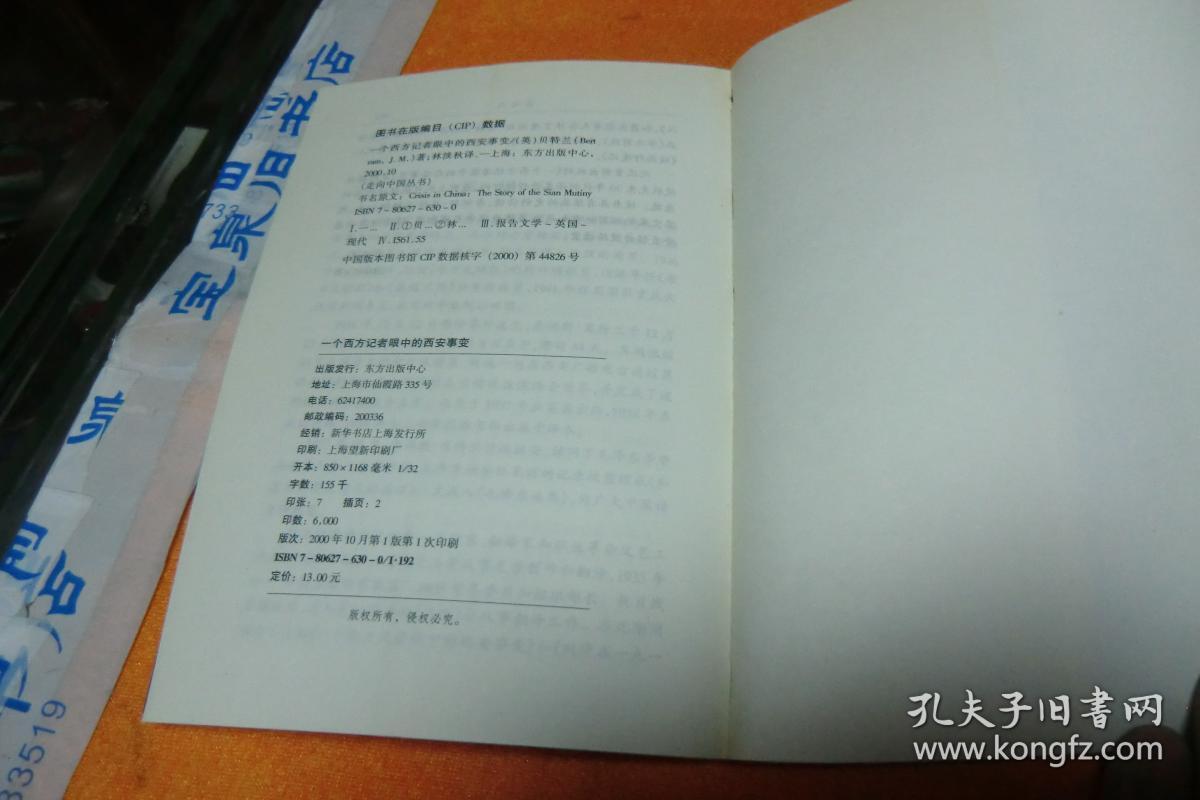 图书在版编目（CIP）数据
一个西方记者眼中的西安事变/(英)贝特兰(Bert
ram, J. M.)著；林淡秋译.—上海：东方出版中心，
2000.10
（走向中国丛书）
书名原文：Crisis in China：The Story of the Sian Mutiny
ISBN 7－80627－630－0
Ⅰ.一… Ⅱ.①贝…②林… Ⅲ.报告文学－英国－
现代 Ⅳ.I561.55
中国版本图书馆CIP数据核字（2000）第44826号
一个西方记者眼中的西安事变
出版发行：东方出版中心
地址：上海市仙霞路335号
电话：62417400
邮政编码：200336
经销：新华书店上海发行所
印刷：上海望新印刷厂
开本：850×1168毫米 1/32
字数：155千
印张：7 插页：2
印数：6,000
版次：2000年10月第1版第1次印刷
ISBN 7－80627－630－0/I·192
定价：13.00元
版权所有，侵权必究。
宝泉旧书店
733
书店
33519
孔夫子旧书网
www.kongfz.com